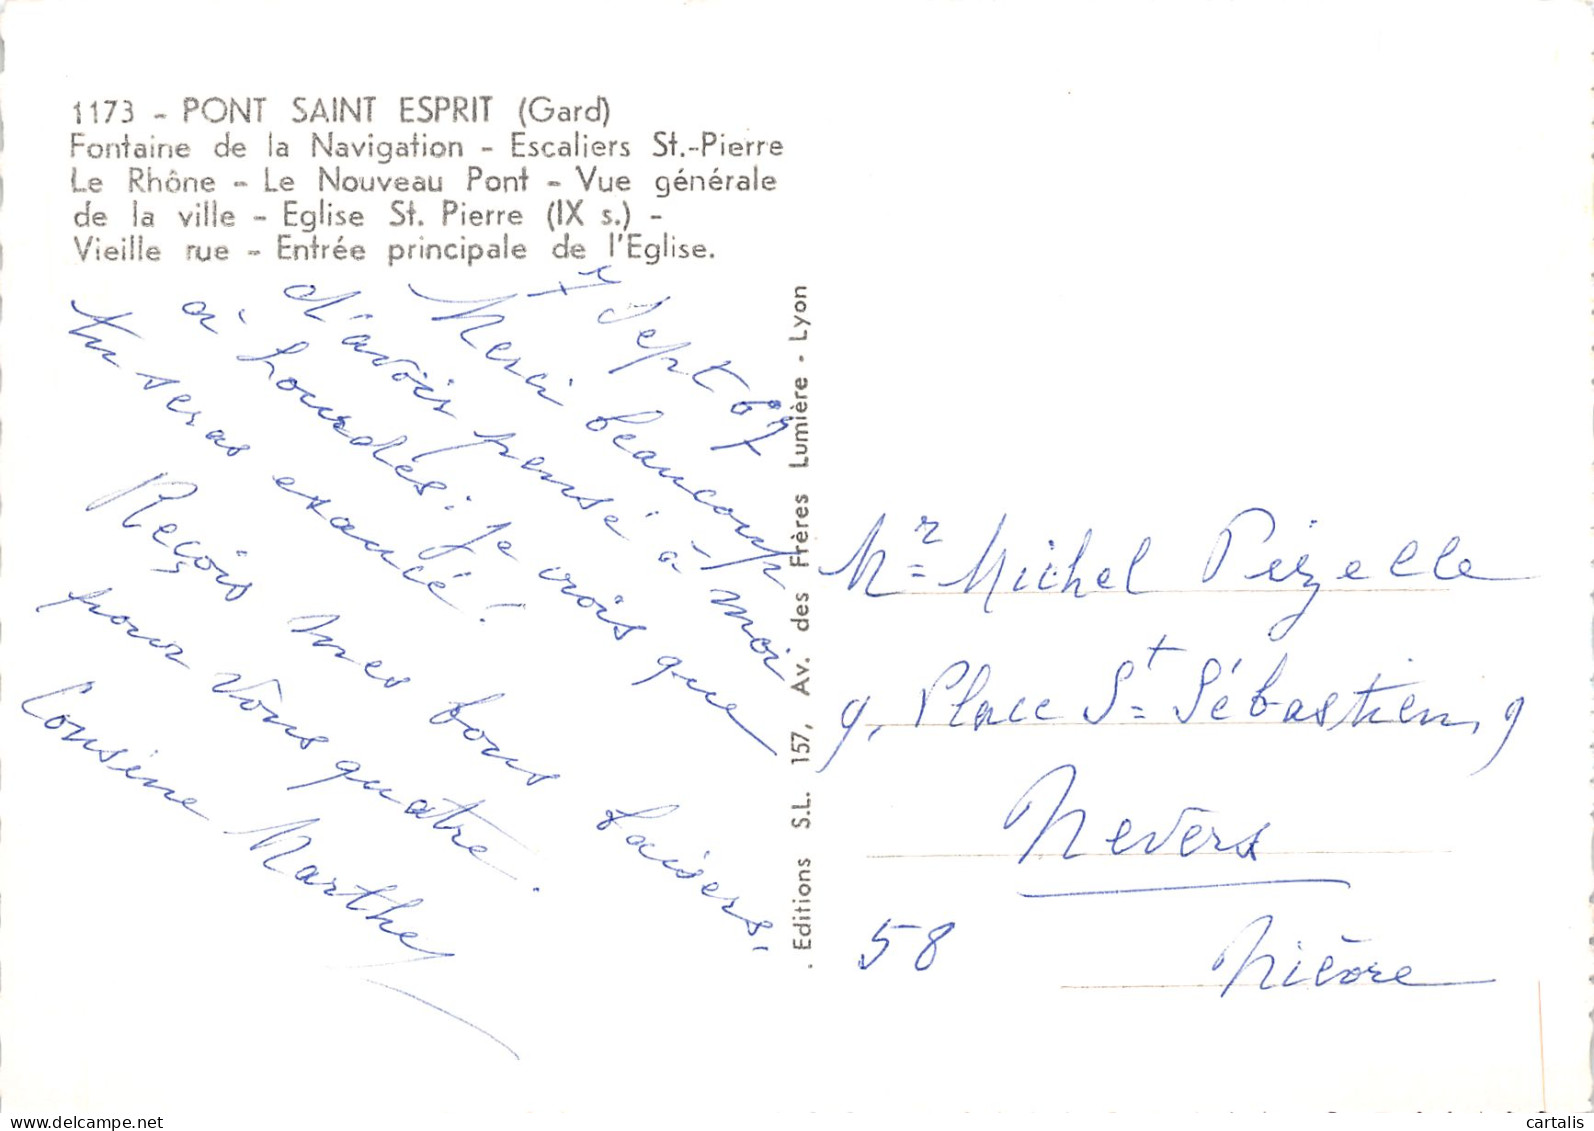 1173 - PONT SAINT ESPRIT (Gard)
Fontaine de la Navigation - Escaliers St.-Pierre
Le Rhône - Le Nouveau Pont - Vue générale
de la ville - Eglise St. Pierre (IX s.) -
Vieille rue - Entrée principale de l'Eglise.
7 Sept 67
Merci beaucoup
d'avoir pensé à moi
à Lourdes : je crois que
tu seras exaucé !
Reçois mes bons baisers
pour vous quatre.
Cousine Marthe
. Editions S.L. 157, Av. des Frères Lumière - Lyon
Mr Michel Pézelle
9, Place St Sébastien, 9
Nevers
58 Nièvre
cartalis